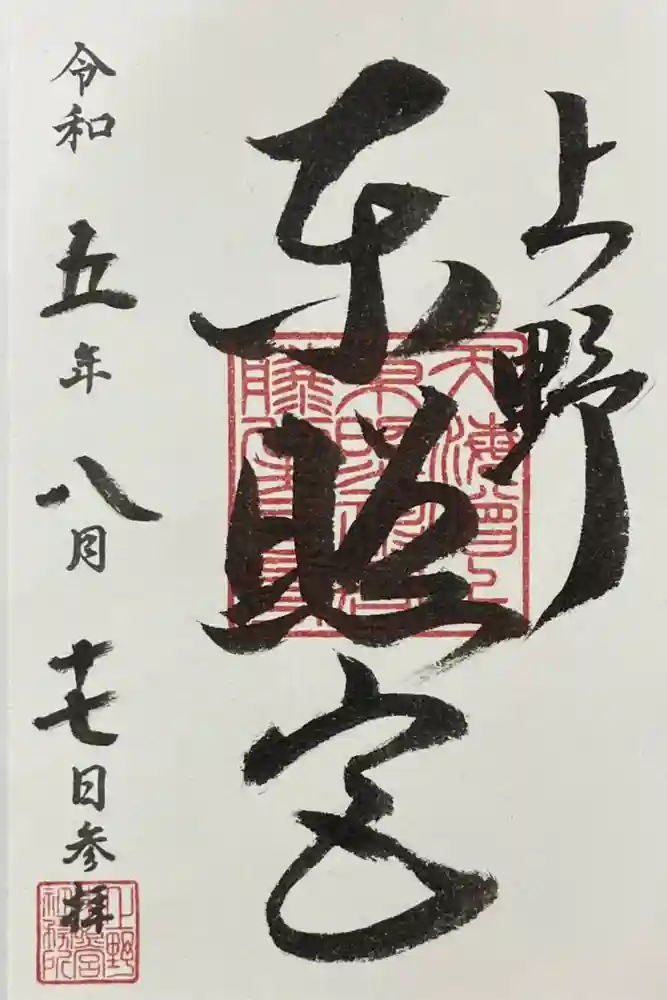 上野
東照宮
令和五年八月十七日参拝
上野
東照宮
社務所